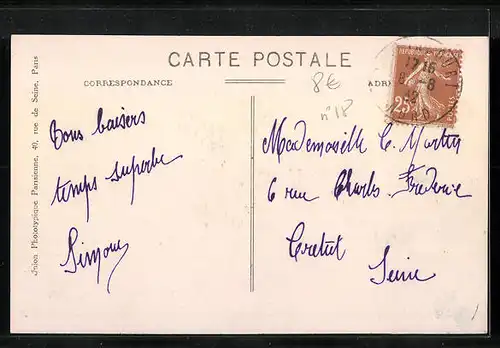 CARTE POSTALE
CORRESPONDANCE
ADRE
8€
n° 18
Union Phototypique Parisienne, 49, rue de Seine, Paris
Bons baisers
temps superbe
Simone
Mademoiselle C. Martin
6 rue Charles Frederic
Creteil
Seine
25
17 16
8 - 8